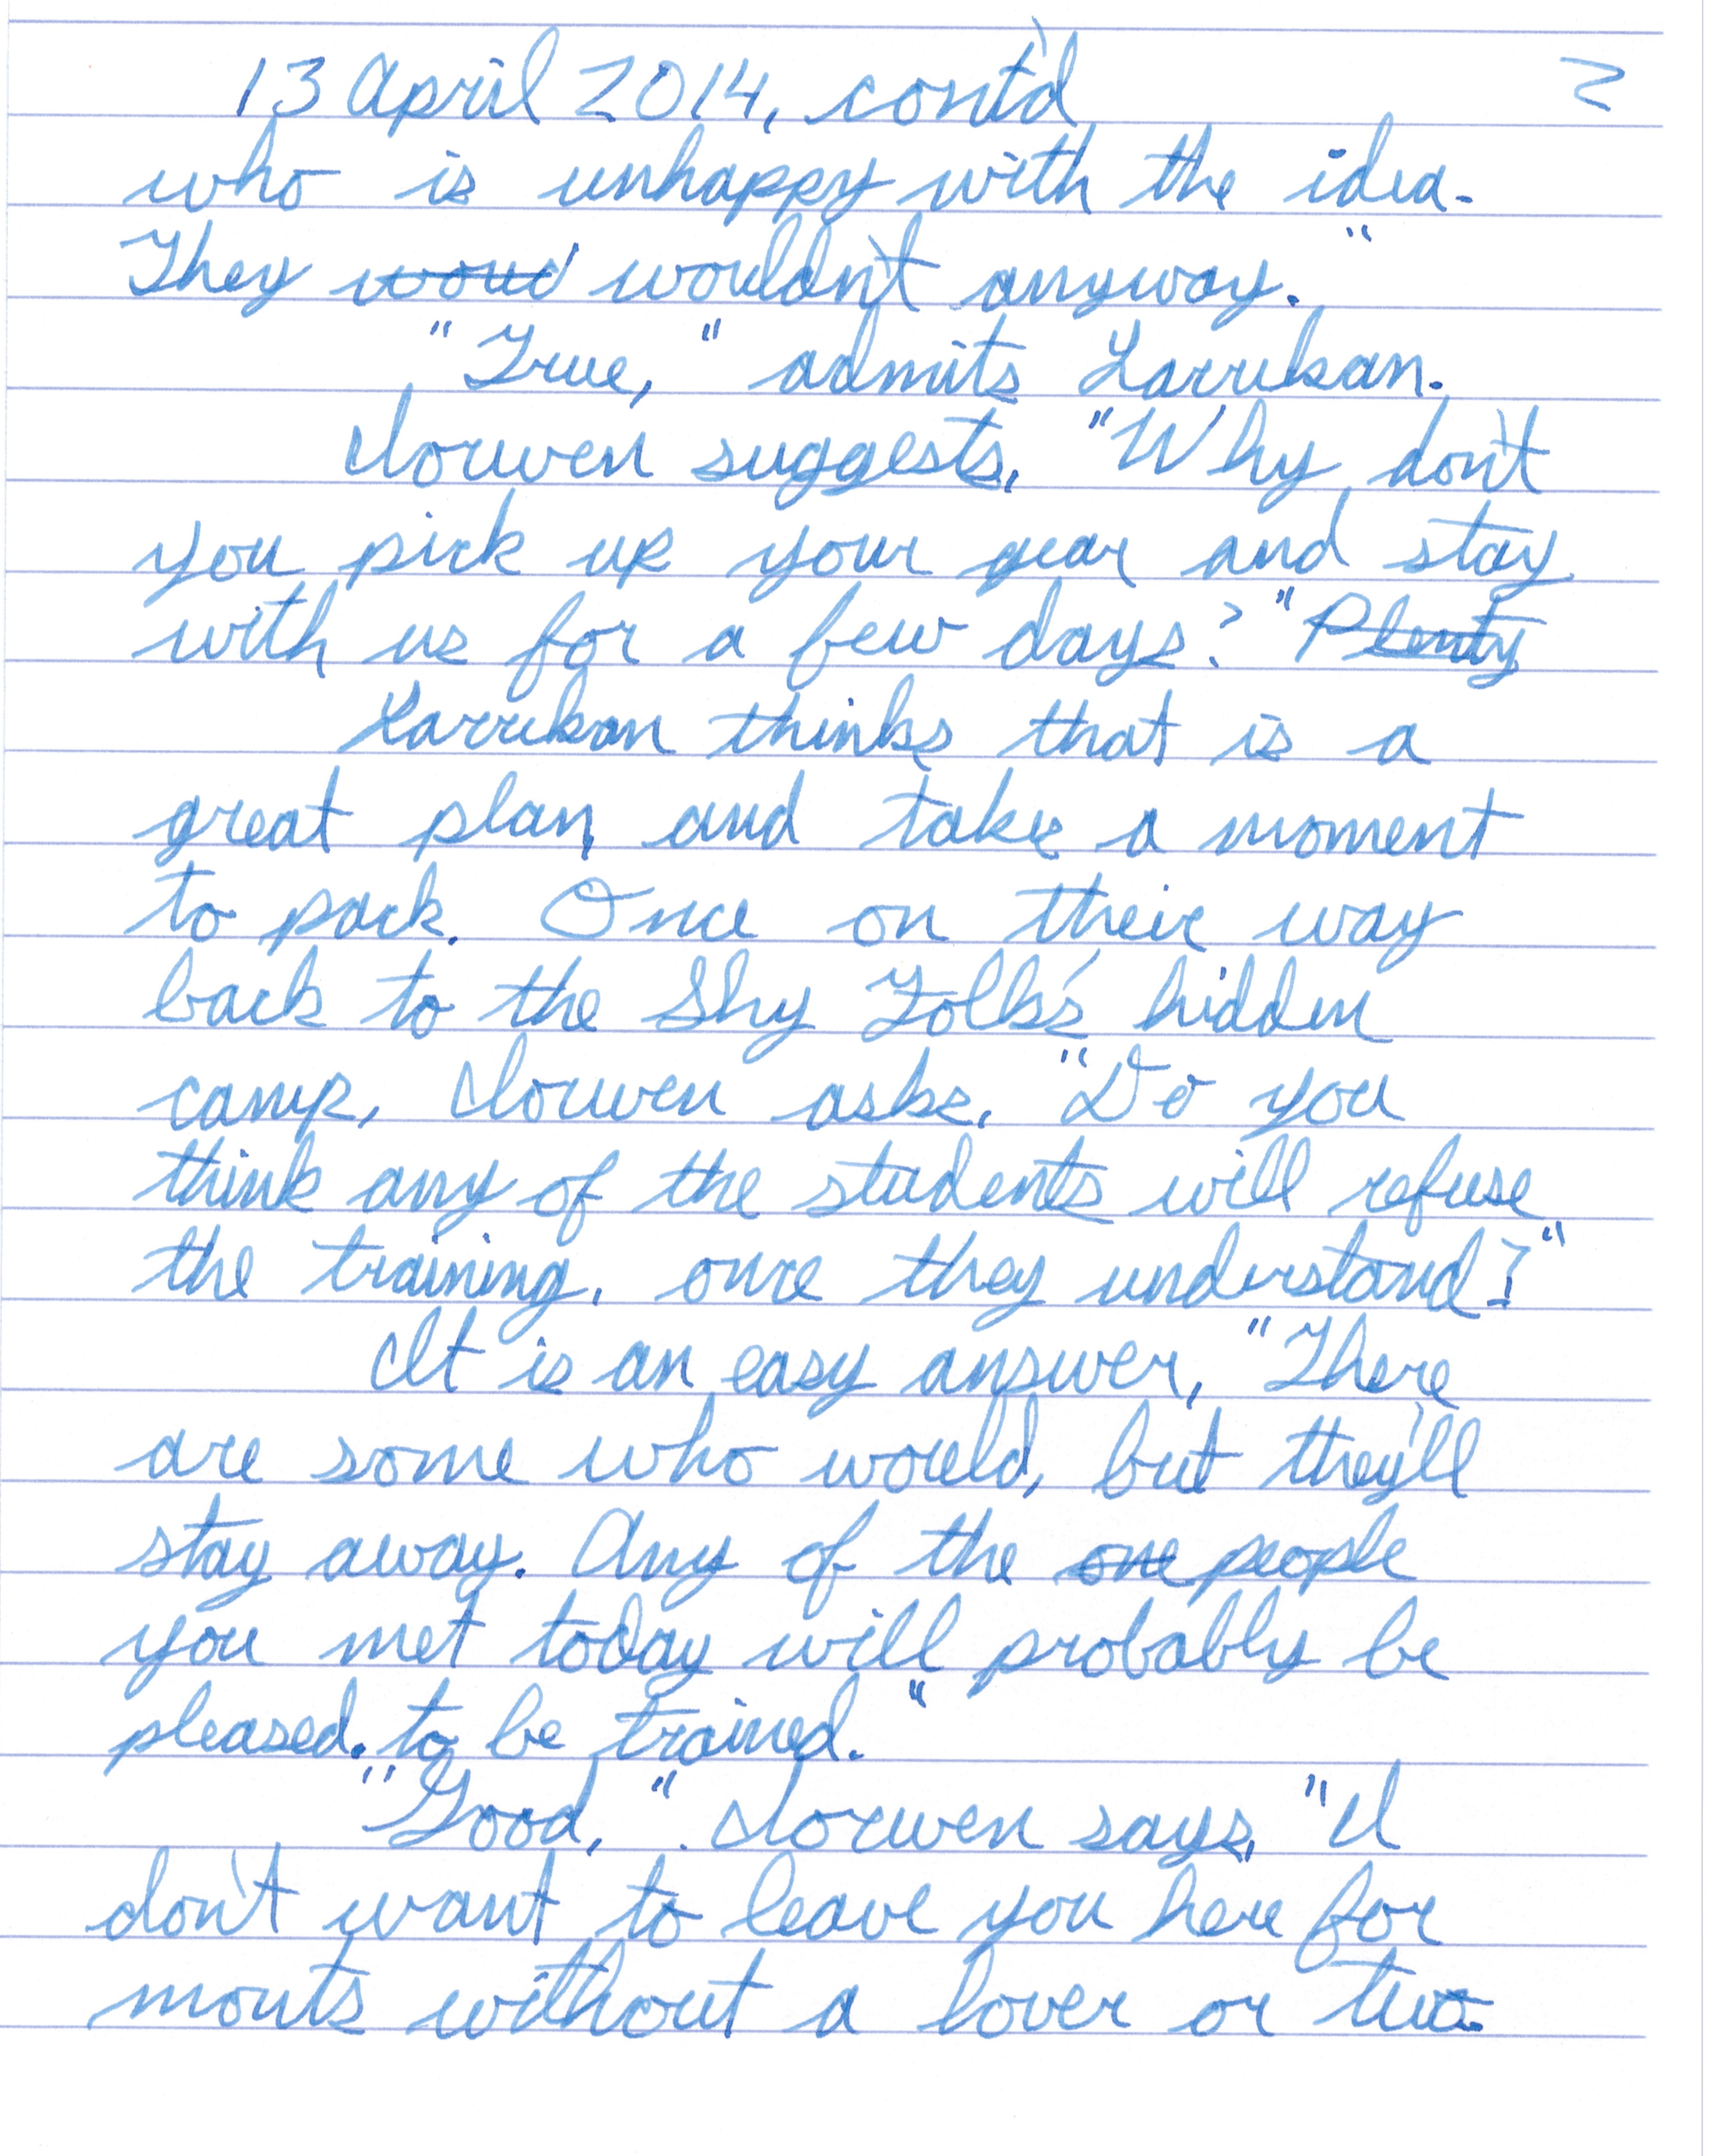 13 April 2014, cont'd 2
who is unhappy with the idea.
They woud wouldn't anyway."
"True," admits Larrikan.
Iorwen suggests, "Why don't
you pick up your gear and stay
with us for a few days?" Plenty
Larrikan thinks that is a
great plan, and takes a moment
to pack. Once on their way
back to the Shy Folk's hidden
camp, Iorwen asks, "Do you
think any of the students will refuse
the training, once they understand?"
It is an easy answer, "There
are some who would, but they'll
stay away. Any of the one people
you met today will probably be
pleased. to be trained."
"Good,". Iorwen says, "I
don't want to leave you here for
monts without a lover or two.